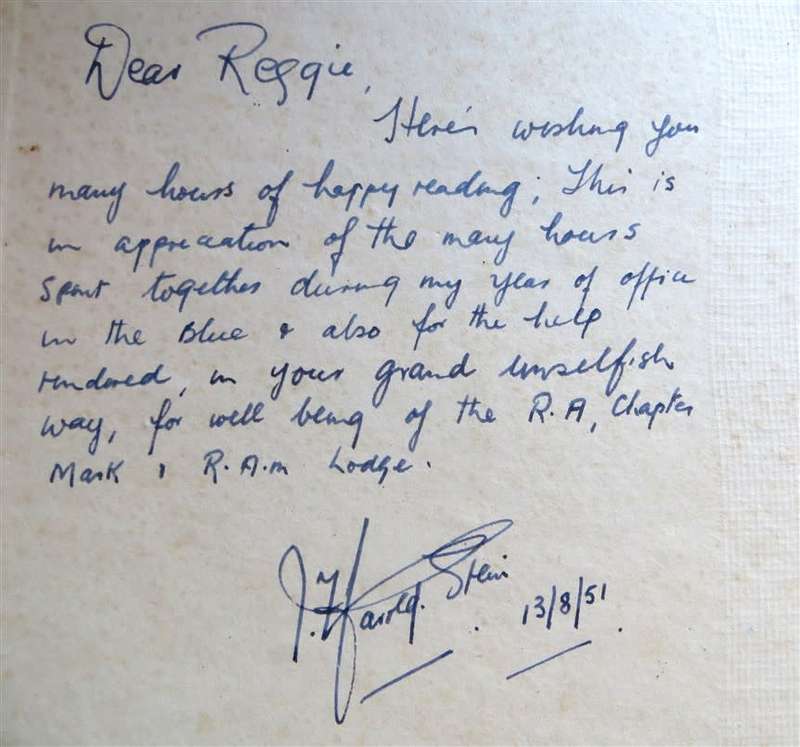 Dear Reggie,
Here's wishing you
many hours of happy reading; This is
in appreciation of the many hours
spent together during my year of office
in the Blue & also for the help
rendered, in your grand unselfish
way, for well being of the R.A, Chapter
Mark & R.A.M Lodge.
J. Harold. Stein
13/8/51.